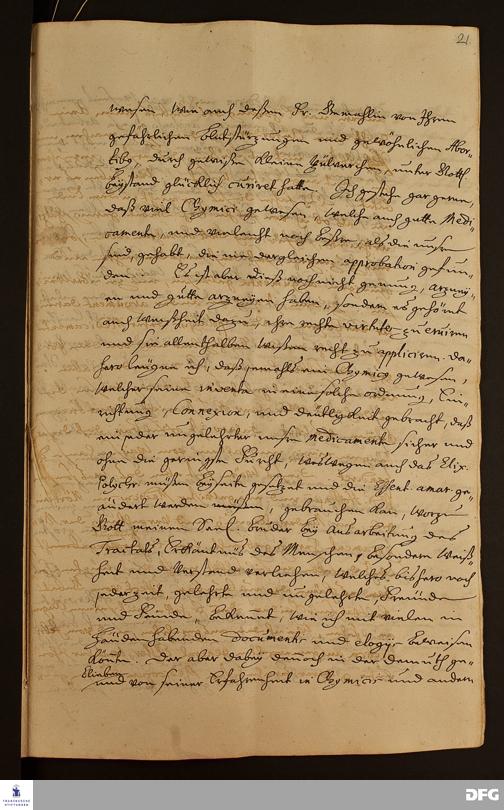 21.
wesen, wie auch deßen Fr. Gemahlin von Ihren
gefährlichen Blutstürzungen und gewöhnlichen Abor-
tibq, durch gewißen kleinen Pülverchen, unter Göttl.
Beystand glücklich curiret hatte. Ich gestehe gar gerne,
daß viel Chymici gewesen, welche auch gutte Medi-
camenta, und vielleicht noch beßre, als die unsre
sind, gehabt, die nie dergleichen approbation gefun-
den. Es ist aber dieß noch nicht genung, Arzney-
en und gutte Arzneyen haben, sondern es gehöret
auch Weißheit dazu, ihre rechte virtutes zu eruiren
und sie allenthalben wißen recht zu appliciren. da-
hero leugne ich, daß jemahls ein Chymicq gewesen,
welcher seine inventa in eine solche ordnung, Ein-
richtung, Connexion, und deutligkeit gebracht, daß
ein jeder ungelehrter unsre Medicamente sicher und
ohne die geringste Furcht, weswegen auch das Elix.
Polychr. müßen beyseite gesetzet und die Eßent. amar. ge-
ändert werden müßen, gebrauchen kan, wozu
Gott meinem Seel. Bruder bey Ausarbeitung des
Tractats, Erkäntnüs des Menschen, besondere Weiß-
heit und Verstand verliehen, welches bishero noch
jederzeit, gelehrte und ungelehrte, Freünde
und Feinde, bekennet, wie ich mit vielen in
Händen habenden documents und elogijs beweisen
könte. Der aber dabey dennoch in der demuth ge-
blieben
und von seiner Erfahrenheit in Chymicis und andern
FRANCKESCHE STIFTUNGEN
DFG